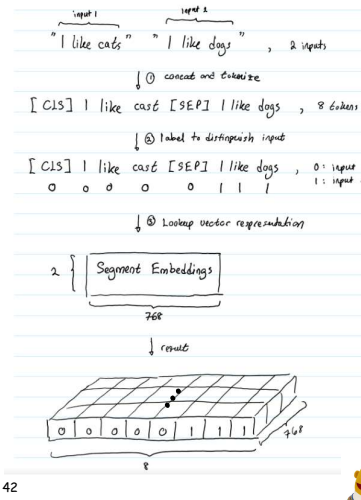 input 1 input 2
"I like cats" "I like dogs" , 2 inputs
① concat and tokenize
[CLS] I like cast [SEP] I like dogs , 8 tokens
② label to distinguish input
[CLS] I like cast [SEP] I like dogs , 0: input
0 0 0 0 0 1 1 1 1: input
③ Lookup vector respresentation
2 { Segment Embeddings
768
result
0 0 0 0 0 1 1 1
768
8
42